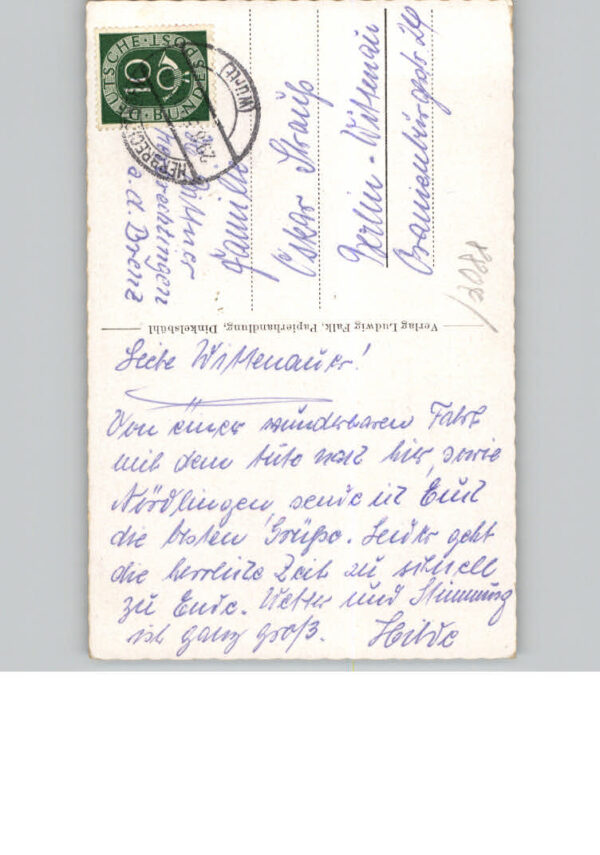 DEUTSCHE BUNDESPOST
10
HERBRECHTINGEN
(Württ)
Herbrechtingen
a. d. Brenz
Familie
Oskar Strauß
Berlin-Wittenau
Oranienburgstr 24
Verlag Ludwig Falk, Papierhandlung, Dinkelsbühl
Liebe Wittenauer!
Von einer wunderbaren Fahrt
mit dem Auto nach hier, sowie
Nördlingen, sende ich Euch
die besten Grüße. Leider geht
die herrliche Zeit zu schnell
zu Ende. Wetter und Stimmung
ist ganz groß. Hilde